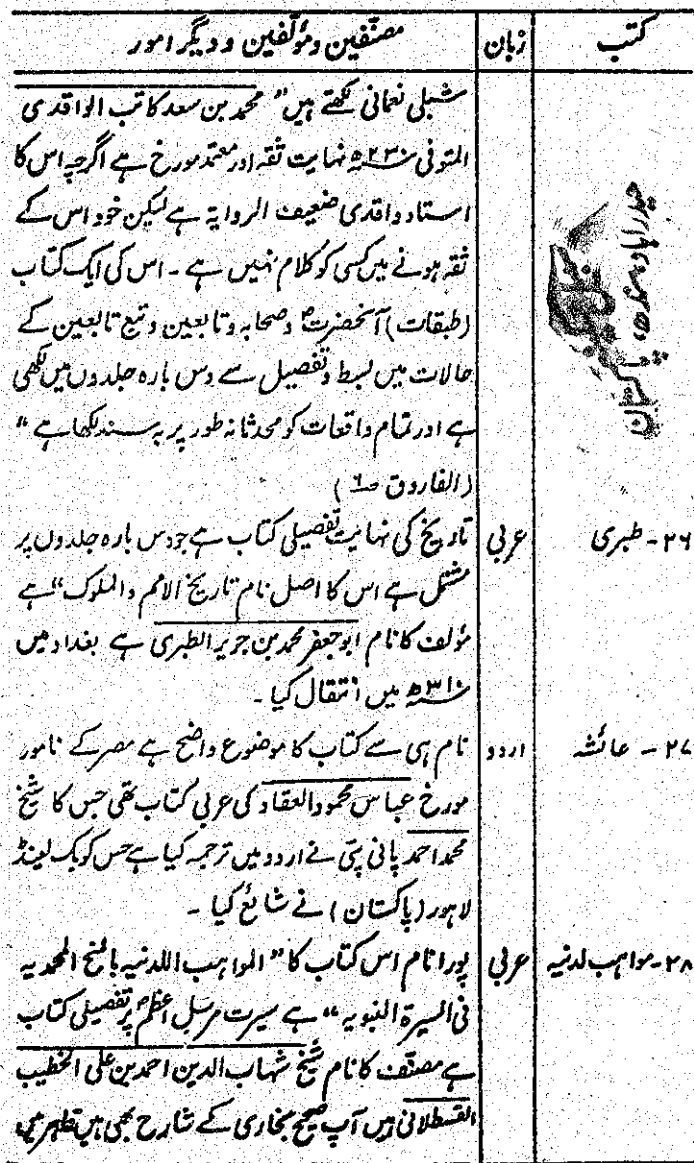 کتب زبان مصنّفین و مؤلفین و دیگر امور
شبلی نعمانی لکھتے ہیں " محمد بن سعد کاتب الواقدی
المتوفی ۲۳۰ھ نہایت ثقہ اور معتمد مورخ ہے اگرچہ اس کا
استاد واقدی ضعیف الروایۃ ہے لیکن خود اس کے
ثقہ ہونے میں کسی کو کلام نہیں ہے ۔ اس کی ایک کتاب
(طبقات) آنحضرتؐ و صحابہ و تابعین و تبع تابعین کے
حالات میں بسط و تفصیل سے دس بارہ جلدوں میں لکھی
ہے اور تمام واقعات کو محدثانہ طور پر بہ سند لکھا ہے "
(الفاروق صـ۶)
۲۶ - طبری عربی تاریخ کی نہایت تفصیلی کتاب ہے جو دس بارہ جلدوں پر
مشتمل ہے اس کا اصل نام تاریخ الامم والملوک " ہے
مؤلف کا نام ابوجعفر محمد بن جریر الطبری ہے بغداد میں
۳۱۰ھ میں انتقال کیا ۔
۲۷ - عائشہ اردو نام ہی سے کتاب کا موضوع واضح ہے مصر کے نامور
مورخ عباس محمود العقاد کی عربی کتاب تھی جس کا شیخ
محمد احمد پانی پتی نے اردو میں ترجمہ کیا ہے جس کو بک لینڈ
لاہور (پاکستان) نے شائع کیا ۔
۲۸-مواہب لدنیہ عربی پورا نام اس کتاب کا " المواہب اللدنیہ بالمنح المحمدیہ
فی السیرۃ النبویہ " ہے سیرت مرسل اعظمؐ پر تفصیلی کتاب
ہے مصنّف کا نام شیخ شہاب الدین احمد بن علی الخطیب
القسطلانی ہیں آپ صحیح بخاری کے شارح بھی ہیں
حیدرآباد سندھ، پاکستان